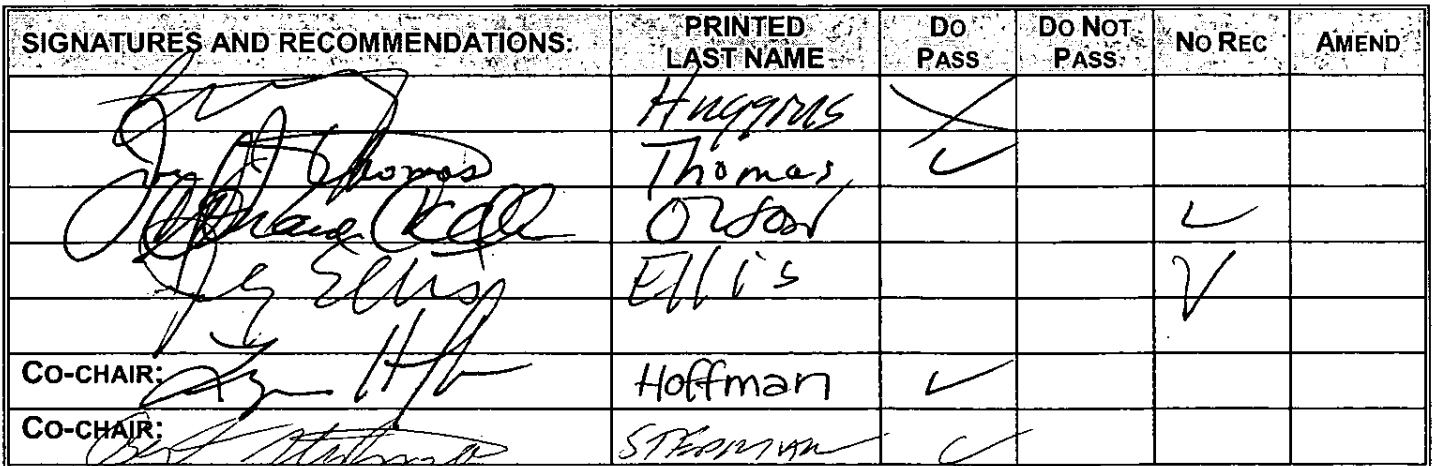 SIGNATURES AND RECOMMENDATIONS: PRINTED LAST NAME DO PASS DO NOT PASS NO REC AMEND
Huggins
Thomas Thomas
Olson
Ellis Ellis
CO-CHAIR: Hoffman
CO-CHAIR: